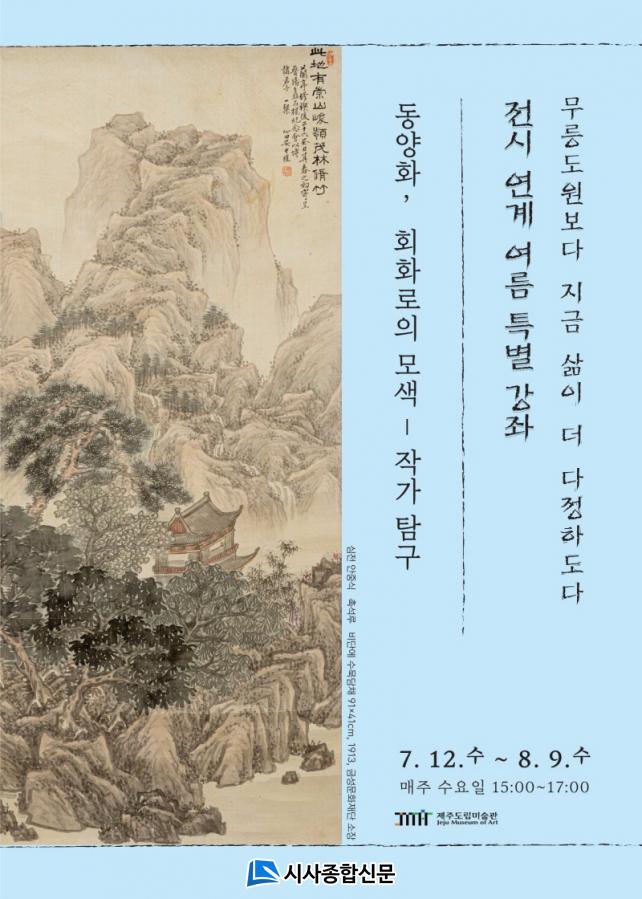 무릉도원보다 지금 삶이 더 다정하도다
전시 연계 여름 특별 강좌
동양화, 회화로의 모색 – 작가 탐구
此地有崇山峻嶺茂林脩竹
심전 안중식 촉석루 비단에 수묵담채 91×41cm, 1913, 금성문화재단 소장
7. 12.수 ~ 8. 9.수
매주 수요일 15:00~17:00
제주도립미술관
Jeju Museum of Art
시사종합신문